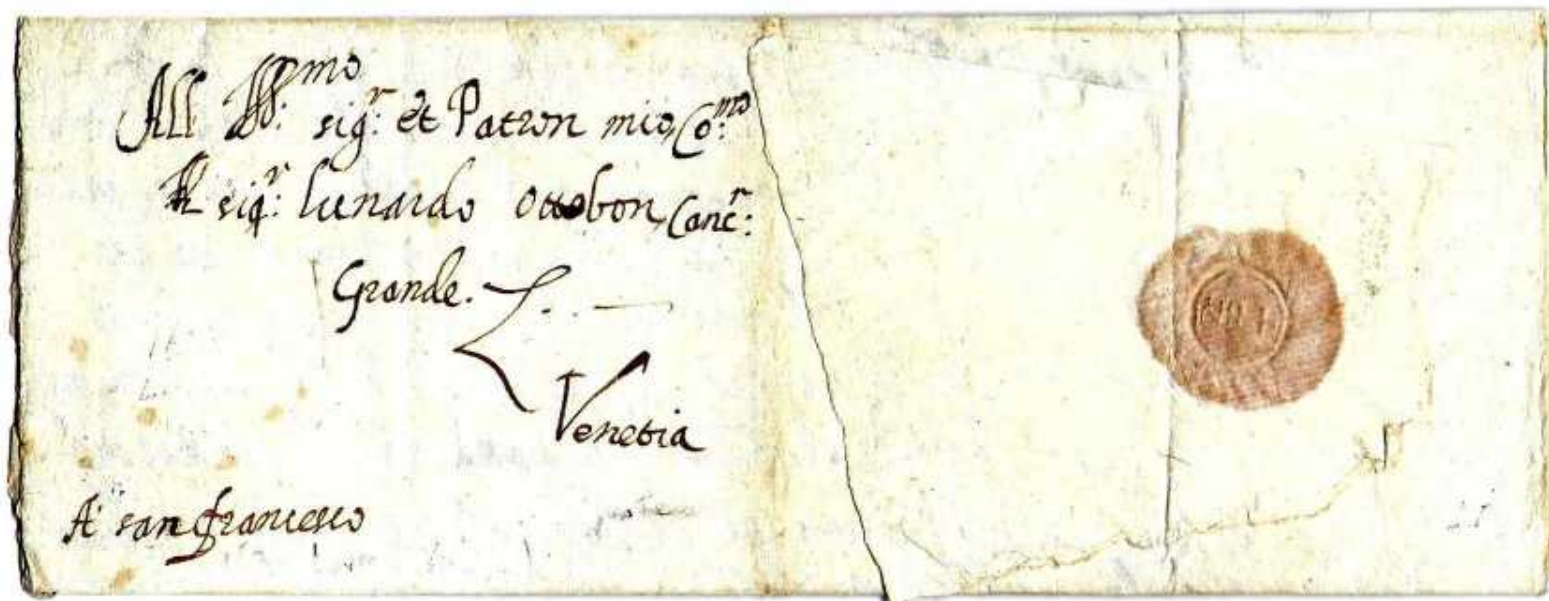 All Ill:mo sig:r et Patron mio Co:mo
Il sig:r lunardo Ottobon Canc:r
Grande.
Venetia
A san francesco